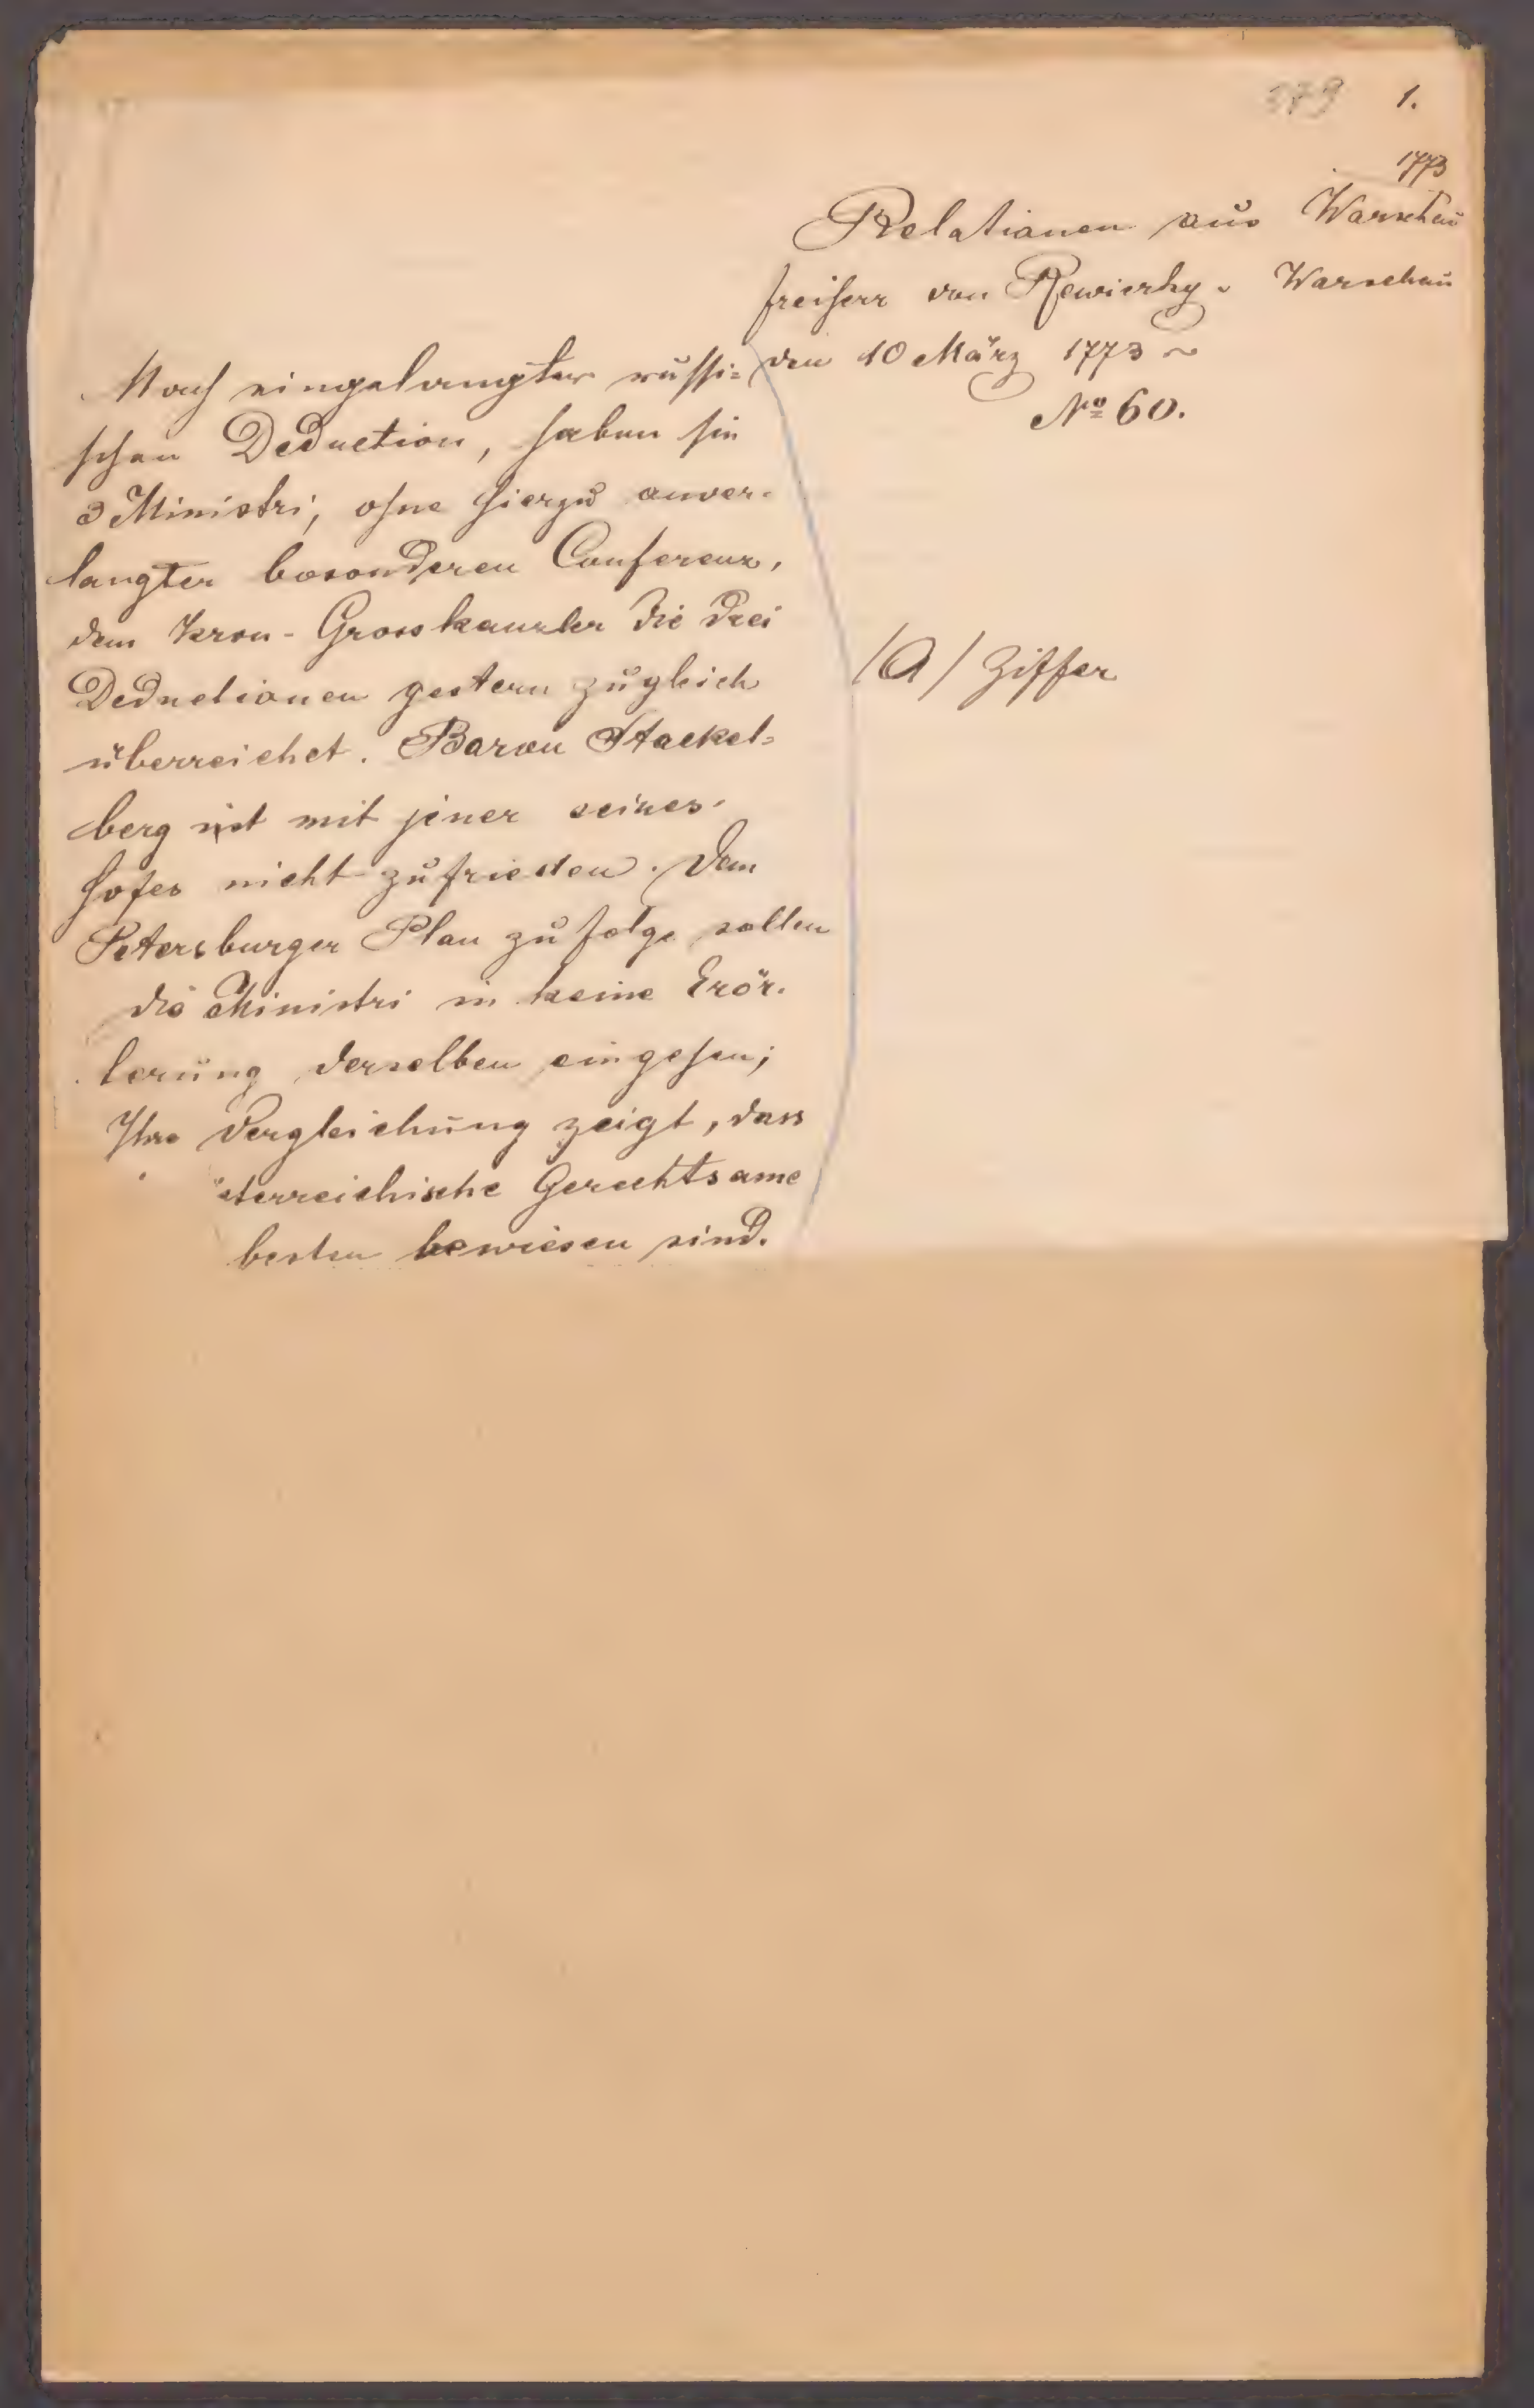 379 1.
1773
Relationen aus Warschau
freiherr von Rewiczky. Warschau
den 10 März 1773
No 60.
Nach eingelangter russi=
schen Deduction, haben die
3 Ministri, ohne hierzu anver-
langter besonderen Conferenz,
dem Kron-Grosskanzler die drei
Deductionen gestern zugleich
überreichet. Baron Stackel=
berg ist mit jener seines
Hofes nicht zufrieden. Dem
Petersburger Plan zu folge sollen
die Ministri in keine Erör-
terung derselben eingehen;
Ihre Vergleichung zeigt, dass
österreichische Gerechtsame
besten bewiesen sind.
/A/ Ziffer